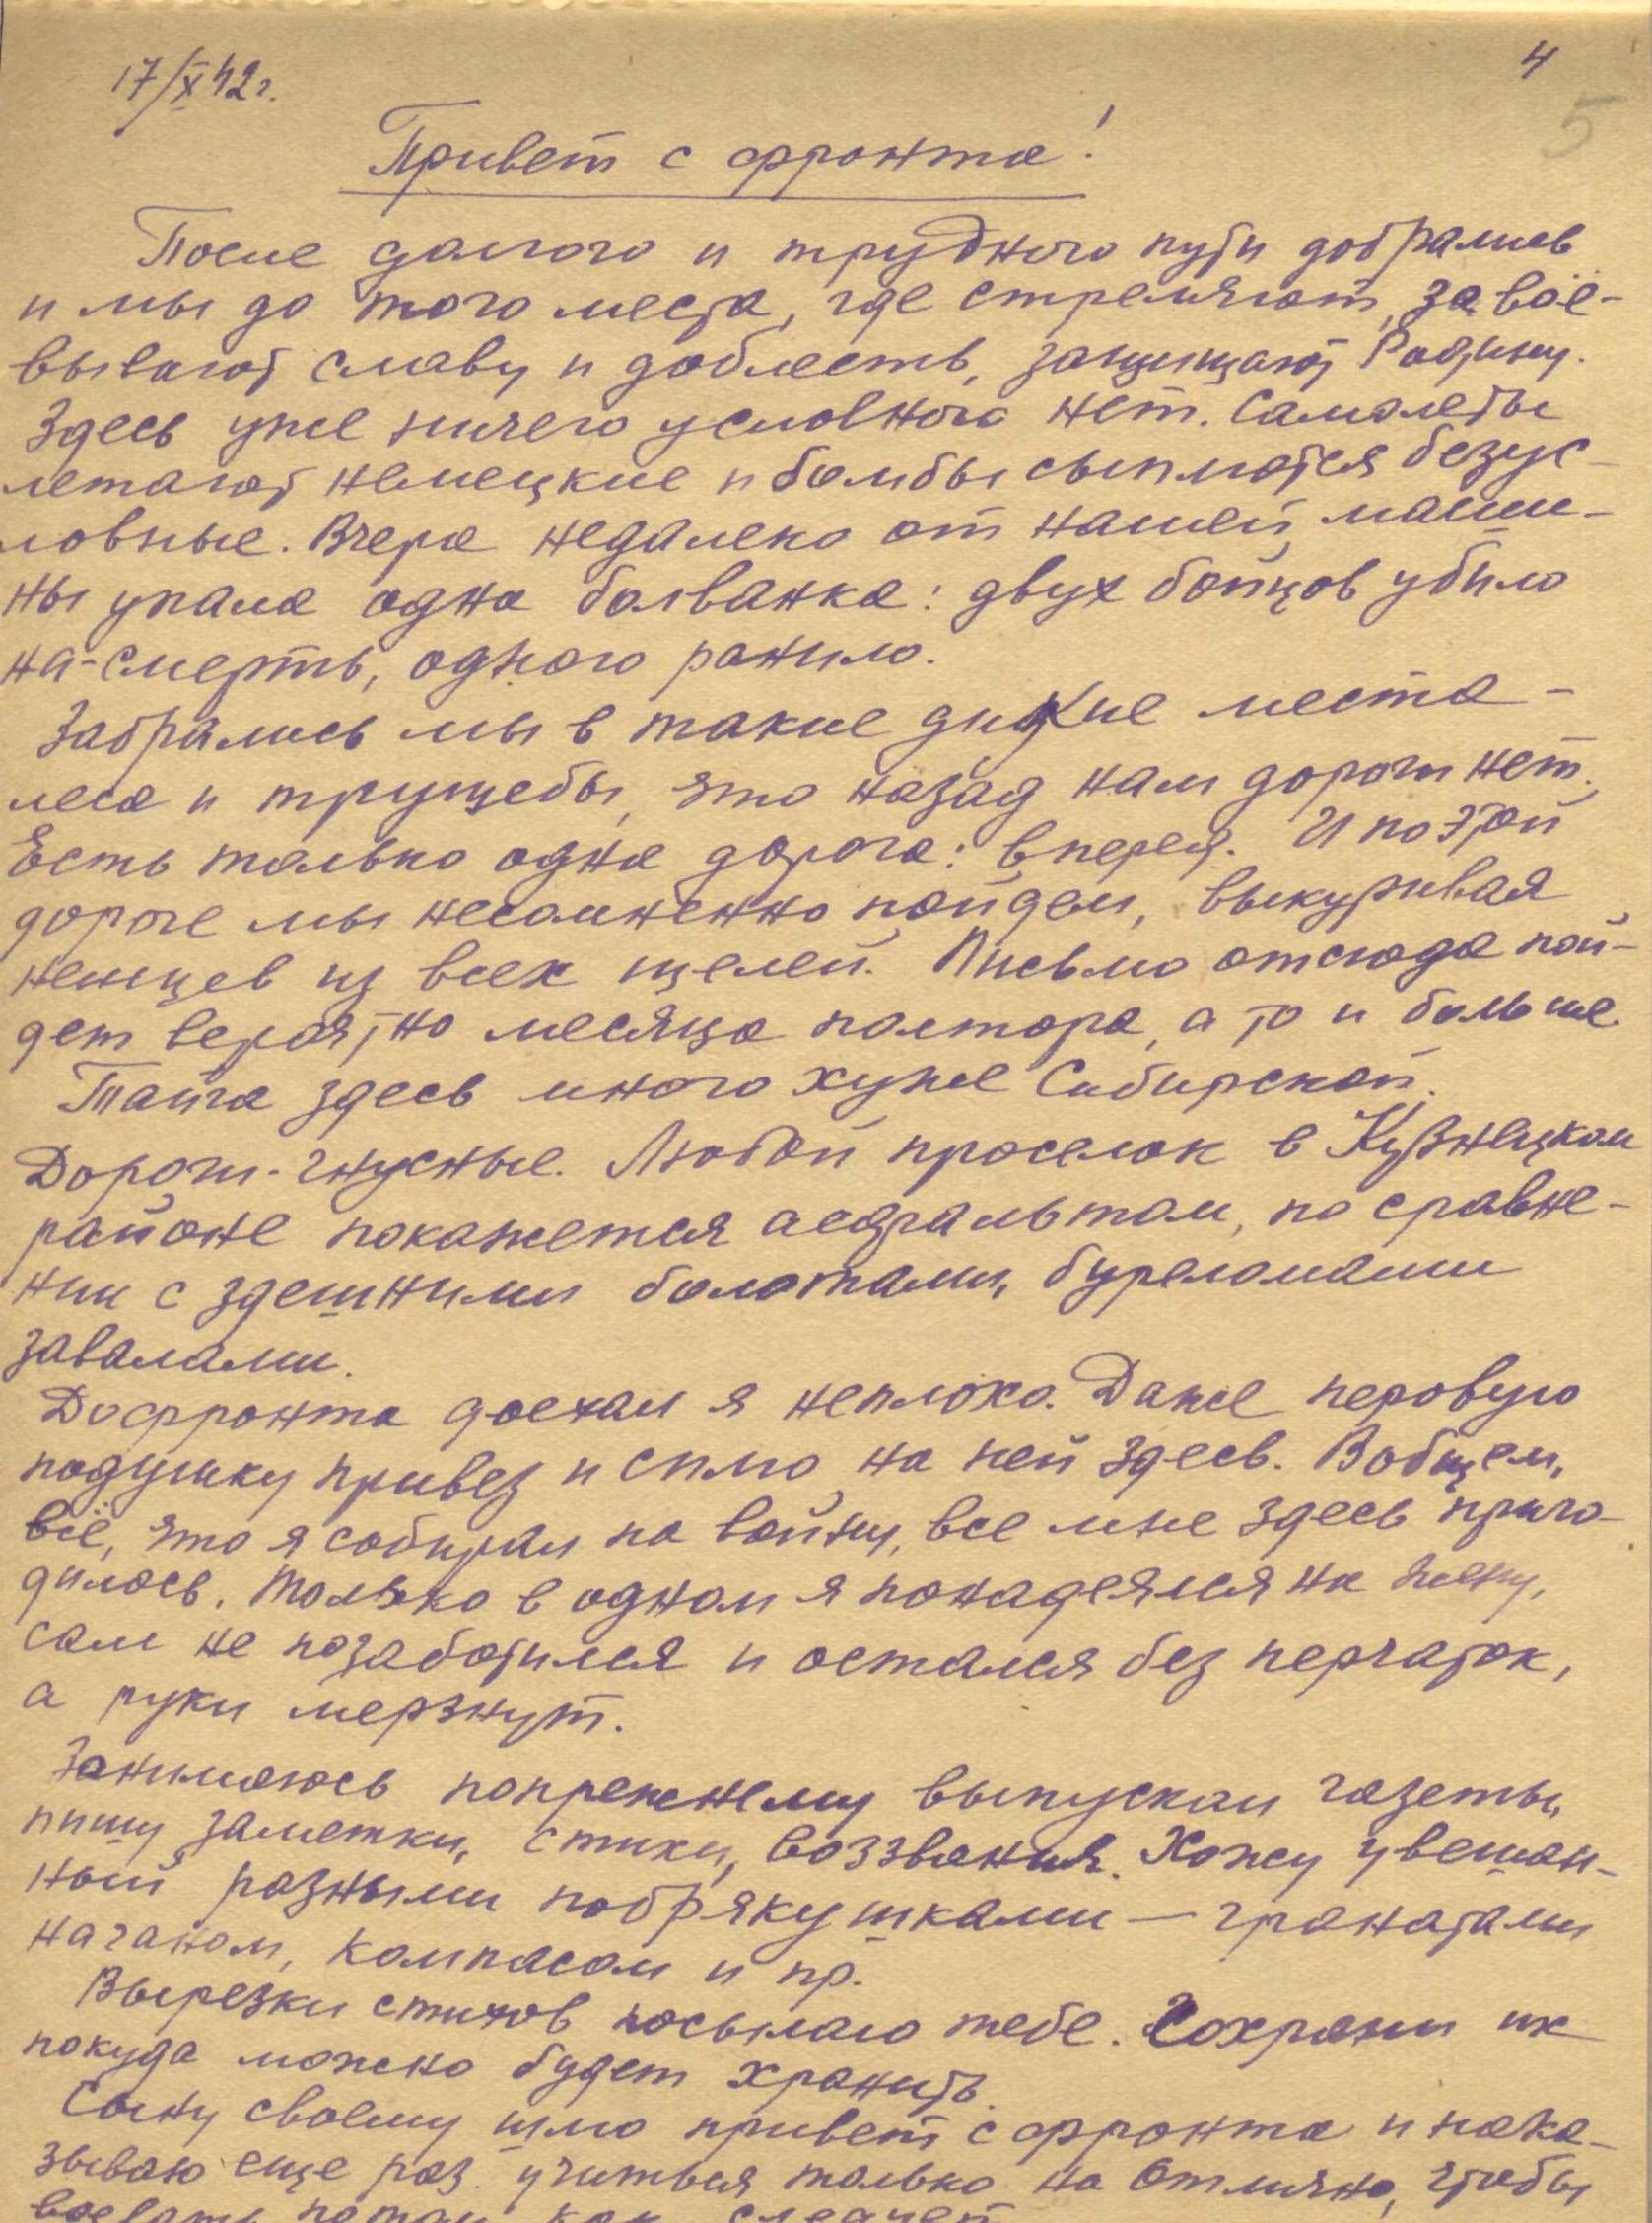 17/X 42 г.
4
5
Привет с фронта!
После долгого и трудного пути добрались
и мы до того места, где стреляют, завоё-
вывают славу и доблесть, защищают Родину.
Здесь уже ничего условного нет. Самолеты
летают немецкие и бомбы сыплются безус-
ловные. Вчера недалеко от нашей маши-
ны упала одна болванка: двух бойцов убило
на-смерть, одного ранило.
Забрались мы в такие дикие места -
леса и трущебы, что назад нам дороги нет.
Есть только одна дорога: вперед. И по этой
дороге мы несомненно пойдем, выкуривая
немцев из всех щелей. Письмо отсюда пой-
дет вероятно месяца полтора, а то и больше.
Тайга здесь много хуже Сибирской.
Дороги - гнусные. Любой проселок в Кузнецком
районе покажется асфальтом, по сравне-
нии с здешними болотами, буреломами
завалами.
До фронта доехал я неплохо. Даже перовую
подушку привез и сплю на ней здесь. Вобщем,
всё, что я собирал на войну, все мне здесь приго-
дилось. Только в одном я понадеялся на жену,
сам не позаботился и остался без перчаток,
а руки мерзнут.
Занимаюсь попрежнему выпуском газеты,
пишу заметки, стихи, воззвания. Хожу увешан-
ный разными побрякушками — гранатами
наганом, компасом и пр.
Вырезки стихов посылаю тебе. Сохрани их
покуда можно будет хранить.
Сыну своему шлю привет с фронта и нака-
зываю еще раз учиться только на Отлично, чтобы
воевать потом как следует